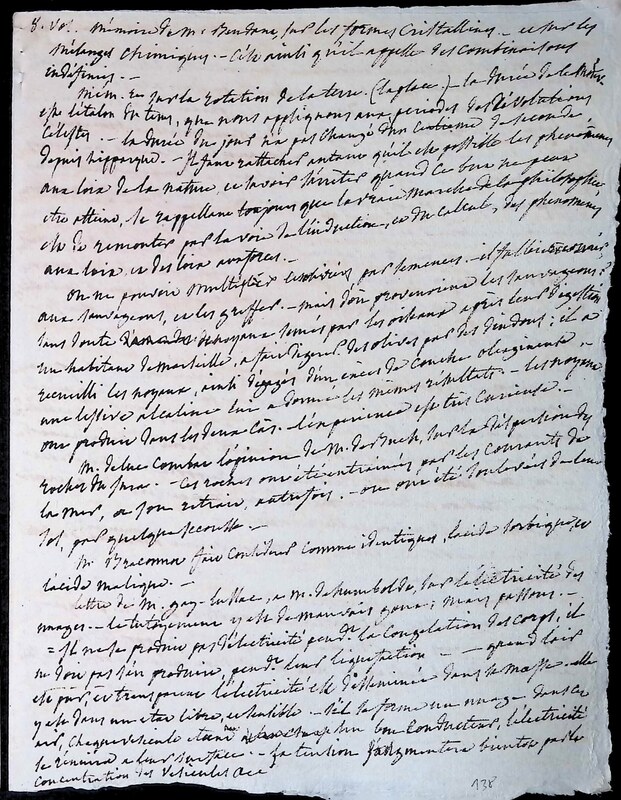 8. Vol. Mémoire de Mr Beudant, sur les formes cristallines - et sur les
mélanges chimiques. - C'est ainsi qu'il appelle des combinaisons
indéfinies. -
Mém. sur la rotation de la terre. (Laplace.) - la durée de la
est l'étalon du tems, que nous appliquons aux périodes des révolutions
célestes. - la durée du jour n'a pas changé d'un centième de seconde
depuis hipparque. - Il faut rattacher autant qu'il est possible les phénomènes
aux loix de la nature, et savoir s'arrêter quand ce but ne peut
être atteint, se rappellant toujours que la vraie marche de la philosophie
est de remonter par la voie de l'induction, et du calcul, des phénomènes
aux loix, et des loix aux forces. -
On ne pouvoit multiplier les oliviers par semences. - il falloit
aux sauvageons, et les greffer. - mais d'où provenoient les sauvageons ?
sans doute de noyaux semés par les oiseaux après leur digestion
un habitant de marseille, a fait digérer des olives par des dindons ; il a
recueilli les noyaux, ainsi dégagés d'un excès de couche oléagineuse -
une lessive alcaline lui a donné les mêmes résultats. - les noyaux
ont produit dans les deux cas. - l'expérience est très curieuse. -
M. deluc combat l'opinion de M. de Buch, sur la dispersion des
roches du Jura. - Ces roches ont été entrainées par les courants de
la mer, ou son retrait, autrefois. - ou ont été soulevées de leur
sol, par quelque secousse. -
M. Braconnot fait considérer comme identiques, l'acide sorbique, et
l'acide malique. -
lettre de M. gay-Lussac, à M. de humboldt, sur l'électricité des
nuages - le tutoyement y est de mauvais gout ; mais passons. -
= Il ne se produit pas d'électricité pendt la congelation des corps, il
ne doit pas s'en produire, pendt leur liquéfaction - - quand l'air
est pur, et transparent l'électricité est disséminée dans sa masse. - elle
y est dans un état libre, et sensible - s'il se forme un nuage dans cet
air, chaque vésicule étant un bon conducteur, l'électricité
se rendra à leur surface. - Sa tension s'augmentera bientot par la
concentration des vésicules &ce
138